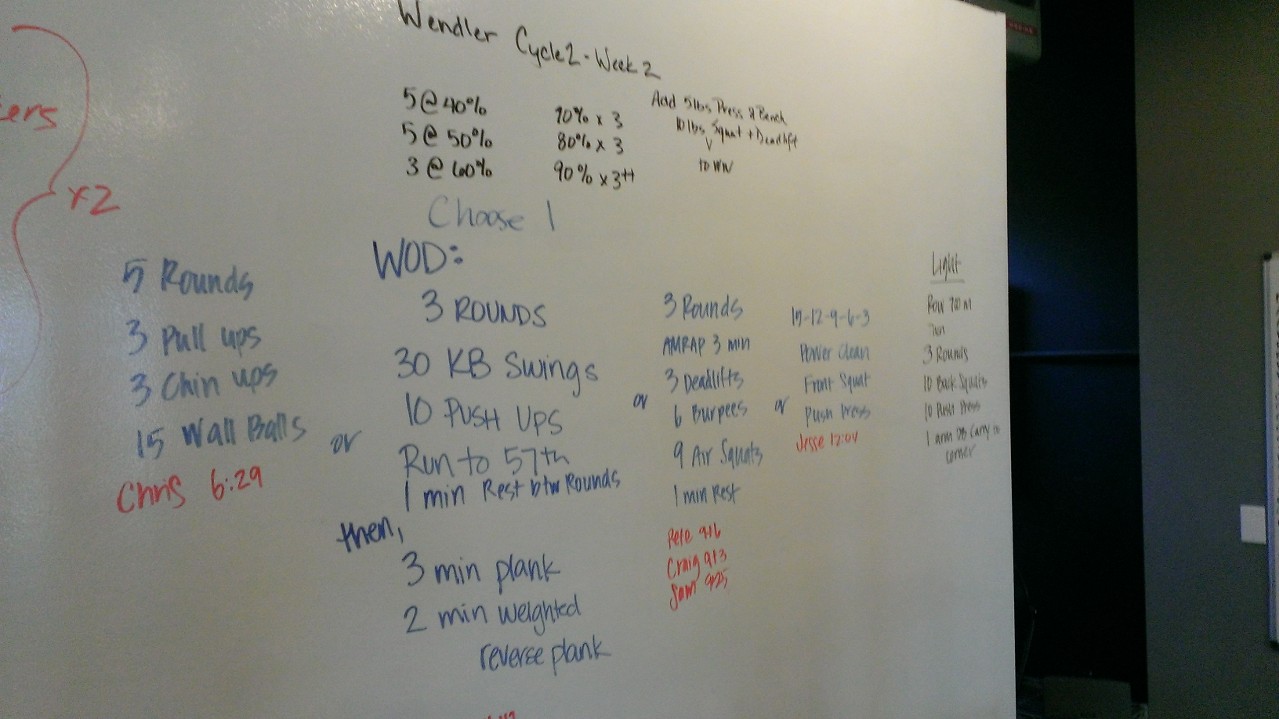 Wendler Cycle 2 - Week 2
5 @ 40%
5 @ 50%
3 @ 60%
70% x 3
80% x 3
90% x 3++
Add 5lbs Press & Bench
10 lbs Squat + Deadlift
to WW
ers
x2
Choose 1
5 Rounds
3 Pull ups
3 Chin ups
15 Wall Balls
Chris 6:29
or
WOD:
3 ROUNDS
30 KB Swings
10 PUSH UPS
Run to 57th
1 min Rest btw Rounds
then,
3 min plank
2 min weighted
reverse plank
or
3 Rounds
AMRAP 3 min
3 Deadlifts
6 Burpees
9 Air Squats
1 min Rest
Pete 9+6
Craig 9+3
Sam
or
15-12-9-6-3
Power Clean
Front Squat
Push Press
Jesse 12:04
Light
Row
3 Rounds
10 Back Squats
10 Push Press
1 arm carry to
corner